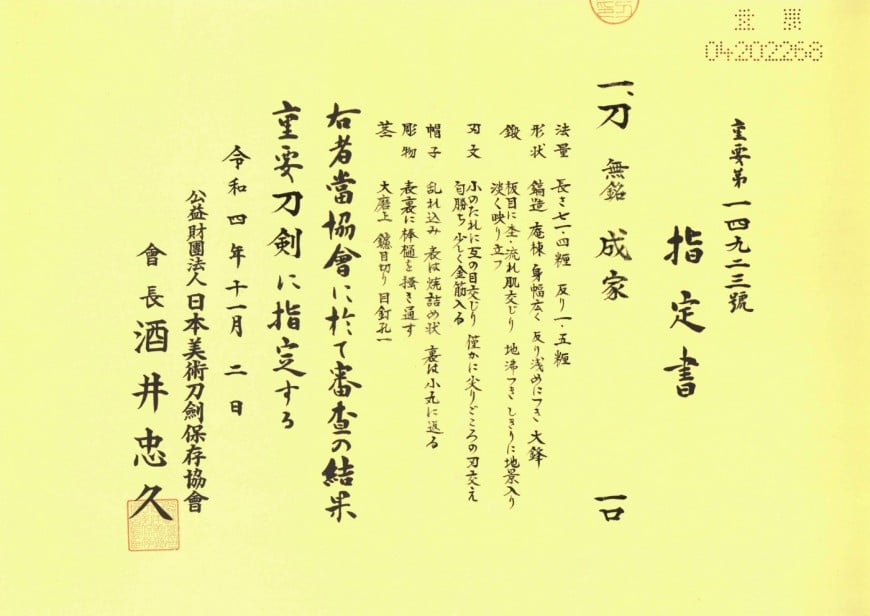 重要
04202268
重要第一四九二三號
指定書
一、刀 無銘 成家 一口
法量 長さ七一・四糎 反り一・五糎
形状 鎬造 庵棟 身幅広く 反り浅めにつき 大鋒
鍛 板目に杢・流れ肌交じり 地沸つき しきりに地景入り
淡く映り立つ
刃文 小のたれに互の目交じり 僅かに尖りごころの刃交え
匂勝ち 少しく金筋入る
帽子 乱れ込み 表は焼詰め状 裏は小丸に返る
彫物 表裏に棒樋を掻き通す
茎 大磨上 鑢目切り 目釘孔一
右者當協會に於て審査の結果
重要刀剣に指定する
令和四年十一月二日
公益財團法人日本美術刀劍保存協會
會長 酒井忠久